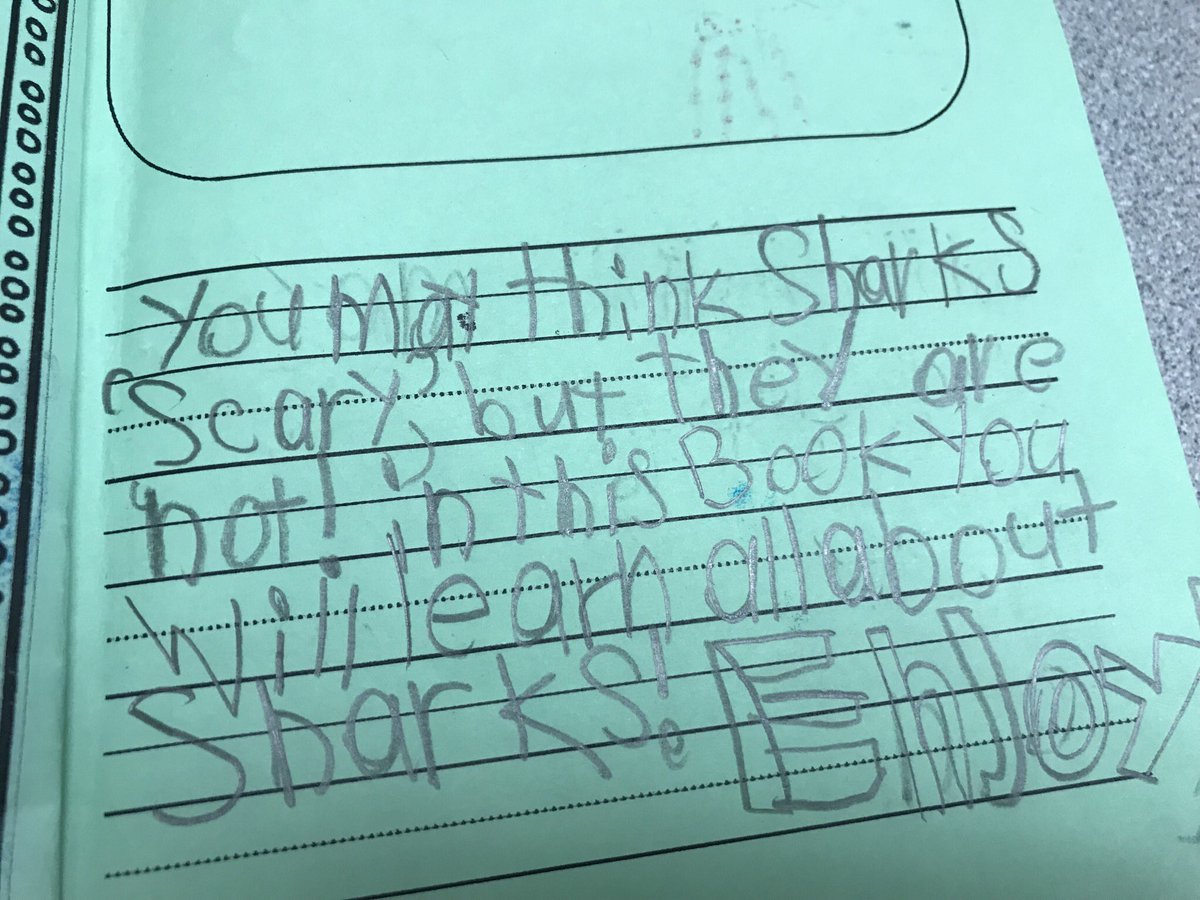 You May think Sharks
Scary, but they are
not! in this Book You
Will learn all about
Sharks! EnJoy